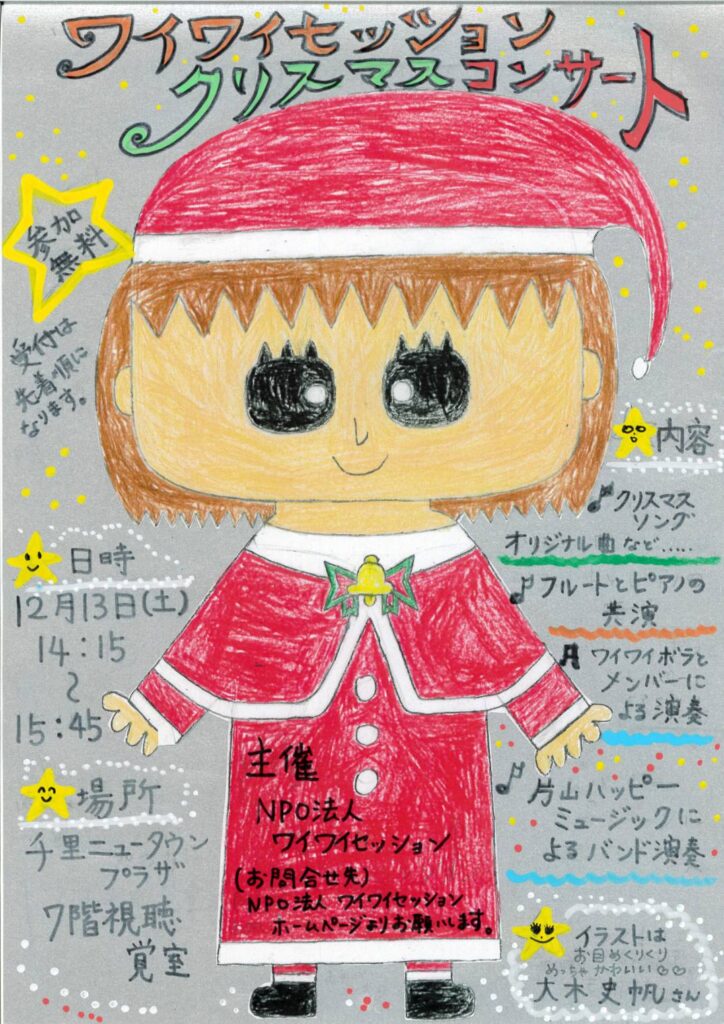 ワイワイセッション
クリスマスコンサート
参加
無料
受付は
先着順に
なります。
日時
12月13日(土)
14:15
〜
15:45
場所
千里ニュータウン
プラザ
7階視聴
覚室
内容
クリスマス
ソング
オリジナル曲など.....
フルートとピアノの
共演
ワイワイボラと
メンバーに
よる演奏
片山ハッピー
ミュージックに
よるバンド演奏
主催
NPO法人
ワイワイセッション
(お問合せ先)
NPO法人 ワイワイセッション
ホームページよりお願いします。
イラストは
お目めくりくり
めっちゃかわいい♡♡
大木史帆さん